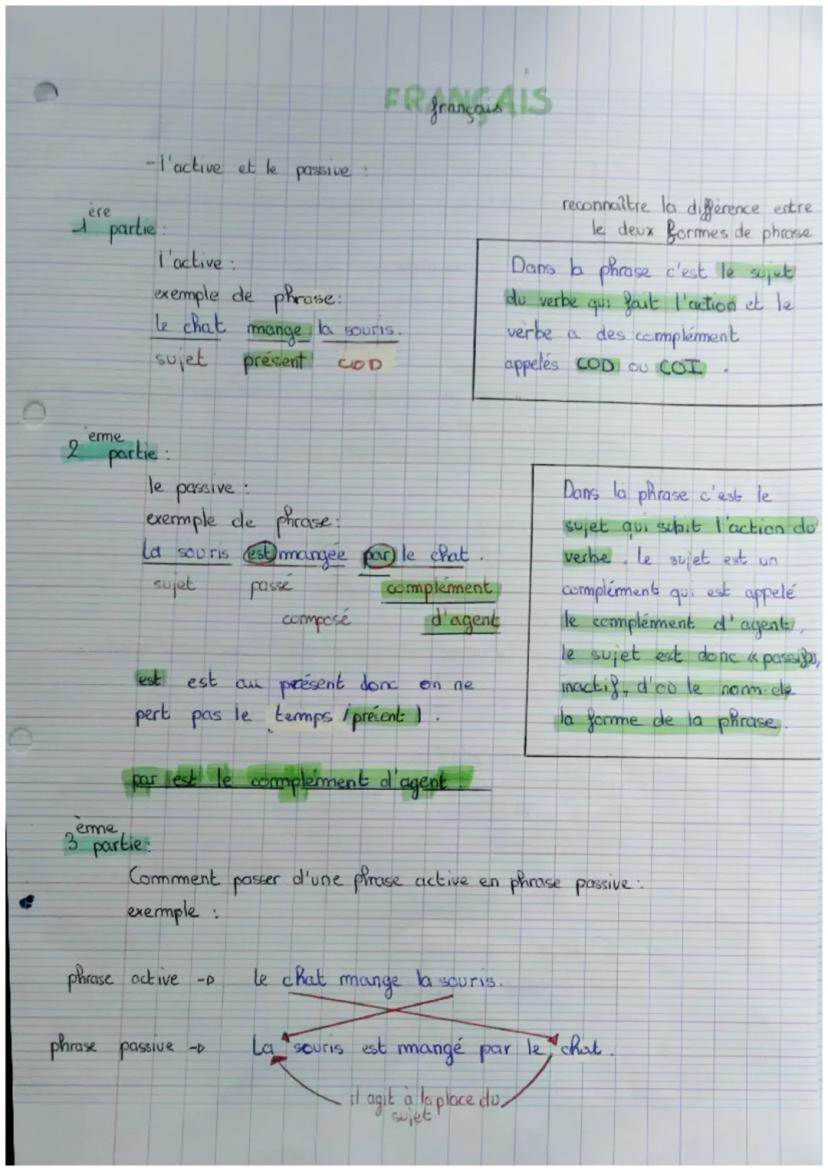 FRANÇAIS
français
-l'active et le passive :
1ère partie :
l'active :
exemple de phrase:
le chat mange la souris.
sujet présent COD
reconnaître la différence entre
le deux formes de phrase
Dans la phrase c'est le sujet
du verbe qui fait l'action et le
verbe a des complément
appelés COD ou COI.
2ème partie :
le passive :
exemple de phrase:
La souris est mangée par le chat.
sujet passé complément
composé d'agent
est est au présent donc on ne
pert pas le temps (présent).
par est le complément d'agent.
Dans la phrase c'est le
sujet qui subit l'action du
verbe. le sujet est un
complément qui est appelé
le complément d'agent,
le sujet est donc « passif »,
inactif, d'où le nom de
la forme de la phrase.
3ème partie:
Comment passer d'une phrase active en phrase passive :
exemple :
phrase active -> le chat mange la souris.
phrase passive -> La souris est mangé par le chat.
il agit à la place du
sujet